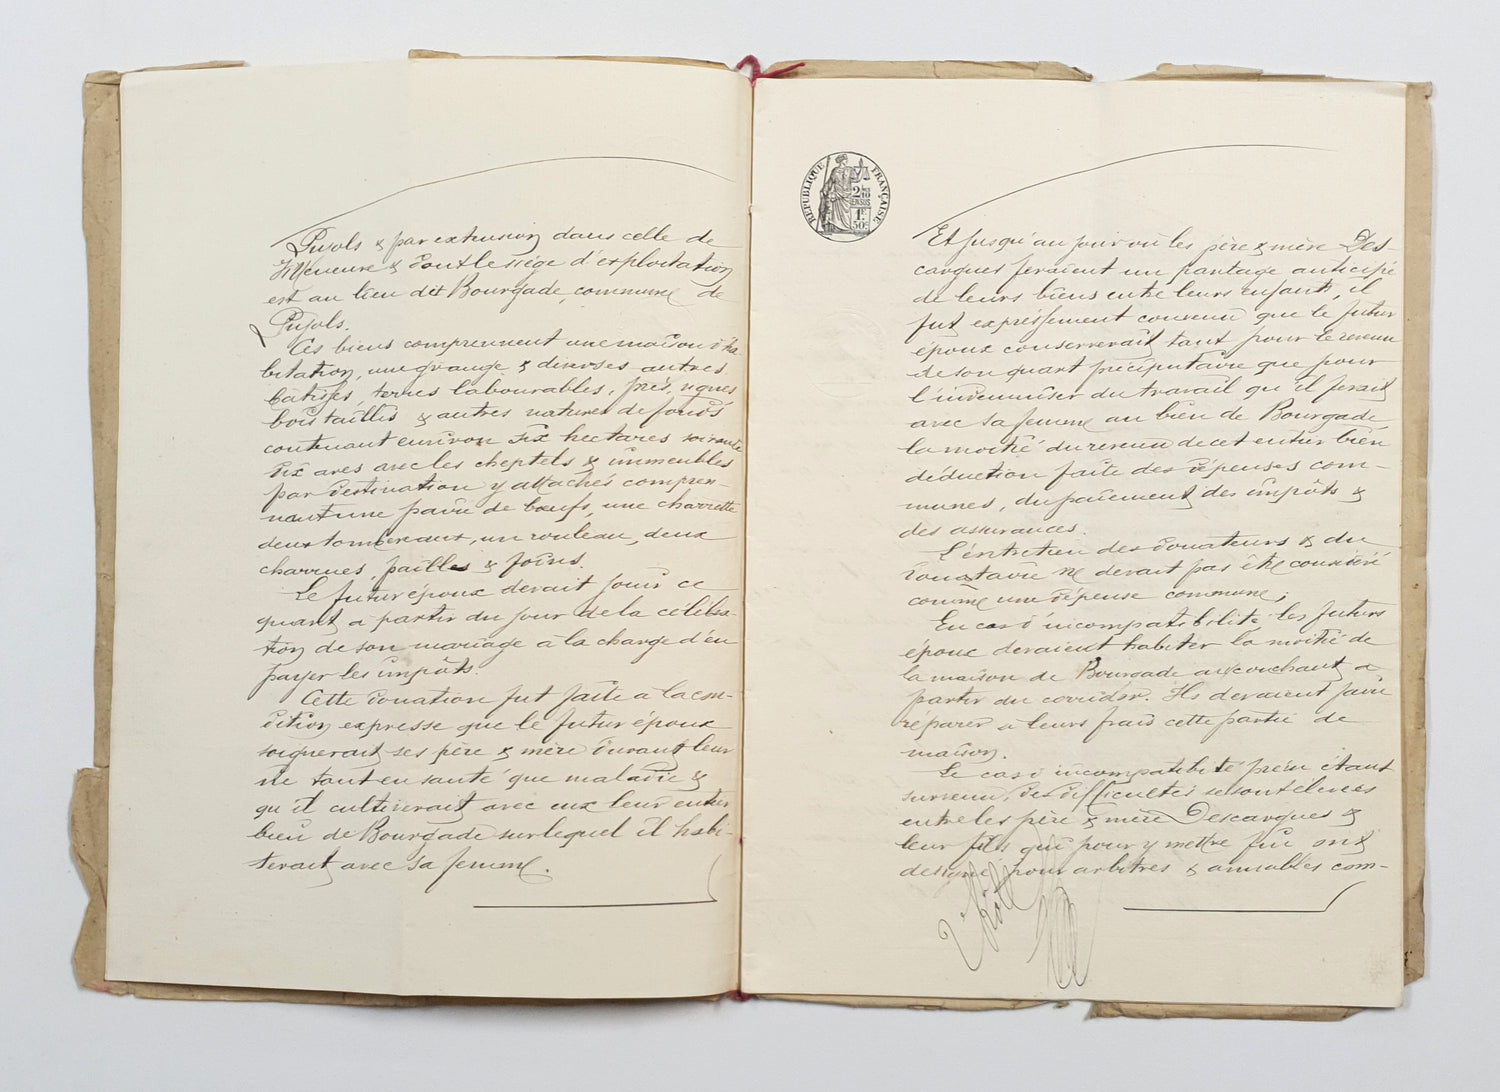 Pujols & par extension dans celle de
Villeneuve & dont le siége d'exploitation
est au lieu dit Bourgade, commune de
Pujols.
Ces biens comprennent une maison d'ha-
bitation, une grange & diverses autres
batisses, terres labourables, prés, vignes
bois taillis & autres natures de fonds
contenant environ six hectares soixante
dix ares avec les cheptels & immeubles
par destination y attachés compre-
nant une paire de bœufs, une charrette
deux tombereaux, un rouleau, deux
charrues, pailles & foins.
Le futur époux devait jouir ce
quart à partir du jour de la célébra-
tion de son mariage à la charge d'en
payer les impôts.
Cette donation fut faite à la con-
dition expresse que le futur époux
soignerait ses père & mère durant leur
vie tant en santé que maladie &
qu'il cultiverait avec eux leur entier
bien de Bourgade sur lequel il habi-
terait avec sa femme.
RÉPUBLIQUE FRANÇAISE
2/10 EN SUS
1F 50c
Et jusqu'au jour où les père & mère Des-
carques feraient un partage anticipé
de leurs biens entre leurs enfants, il
fut expressément convenu que le futur
époux conserverait tant pour le revenu
de son quart préciputaire que pour
l'indemniser du travail qu'il ferait
avec sa femme au bien de Bourgade
la moitié du revenu de cet entier bien
déduction faite des dépenses com-
munes, du paiement des impôts &
des assurances.
L'entretien des donateurs & du
donataire ne devait pas être considéré
comme une dépense commune;
En cas d'incompatibilité les futurs
époux devaient habiter la moitié de
la maison de Bourgade au couchant à
partir du corridor. Ils devaient faire
réparer à leurs frais cette partie de
maison.
Le cas d'incompatibité prévu étant
survenu, des difficultés se sont élevées
entre les père & mère Descarques &
leur fils qui pour y mettre fin ont
designé pour arbitres & amiables com-